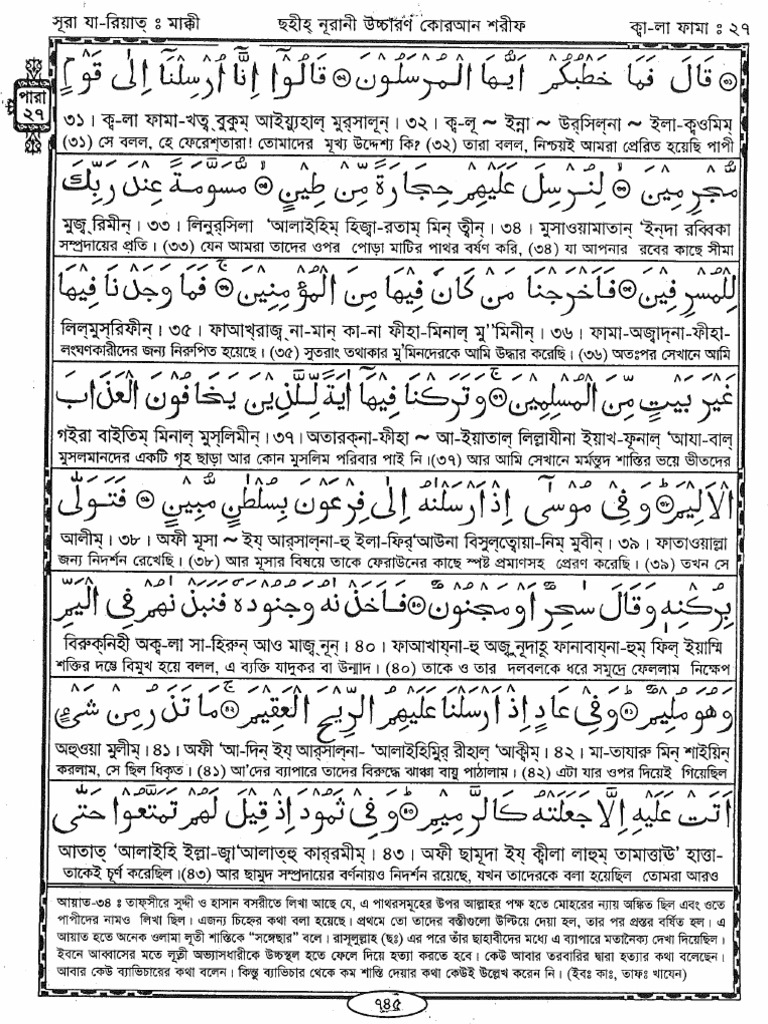 সূরা যা-রিয়াত্ ঃ মাক্কী ছহীহ্ নূরানী উচ্চারণ কোরআন শরীফ ক্বা-লা ফামা ঃ ২৭
পারা
২৭
۞ قَالَ فَمَا خَطْبُكُمْ اَيُّهَا الْمُرْسَلُوْنَ ۞ قَالُوْٓا اِنَّآ اُرْسِلْنَآ اِلٰى قَوْمٍ
৩১। ক্ব-লা ফামা-খত্ব্ বুকুম্ আইয়ুহাল্ মুর্সালূন্। ৩২। ক্ব-লূ ~ ইন্না ~ উর্সিল্না ~ ইলা-ক্বওমিম্
(৩১) সে বলল, হে ফেরেশ্তারা! তোমাদের মূখ্য উদ্দেশ্য কি? (৩২) তারা বলল, নিশ্চয়ই আমরা প্রেরিত হয়েছি পাপী
مُّجْرِمِيْنَ ۞ لِنُرْسِلَ عَلَيْهِمْ حِجَارَةً مِّنْ طِيْنٍ ۞ مُّسَوَّمَةً عِنْدَ رَبِّكَ
মুজ্ রিমীন্। ৩৩। লিনুর্সিলা ‘আলাইহিম্ হিজ্বা-রতাম্ মিন্ ত্বীন্। ৩৪। মুসাওয়ামাতান্ ‘ইন্দা রব্বিকা
সম্প্রদায়ের প্রতি। (৩৩) যেন আমরা তাদের ওপর পোড়া মাটির পাথর বর্ষণ করি, (৩৪) যা আপনার রবের কাছে সীমা
لِلْمُسْرِفِيْنَ ۞ فَاَخْرَجْنَا مَنْ كَانَ فِيْهَا مِنَ الْمُؤْمِنِيْنَ ۞ فَمَا وَجَدْنَا فِيْهَا
লিল্মুস্রিফীন্। ৩৫। ফাআখ্রাজ্ব্ না-মান্ কা-না ফীহা-মিনাল্ মু’’মিনীন্। ৩৬। ফামা-অজ্বাদ্না-ফীহা-
লংঘণকারীদের জন্য নিরুপিত হয়েছে। (৩৫) সুতরাং তথাকার মু’মিনদেরকে আমি উদ্ধার করেছি। (৩৬) অতঃপর সেখানে আমি
غَيْرَ بَيْتٍ مِّنَ الْمُسْلِمِيْنَ ۞ وَتَرَكْنَا فِيْهَآ اٰيَةً لِّلَّذِيْنَ يَخَافُوْنَ الْعَذَابَ
গইরা বাইতিম্ মিনাল্ মুস্লিমীন্। ৩৭। অতারক্না-ফীহা ~ আ-ইয়াতাল্ লিল্লাযীনা ইয়াখ-ফূনাল্ ‘আযা-বাল্
মুসলমানদের একটি গৃহ ছাড়া আর কোন মুসলিম পরিবার পাই নি।(৩৭) আর আমি সেখানে মর্মন্তুদ শাস্তির ভয়ে ভীতদের
الْاَلِيْمَ ۞ وَفِيْ مُوْسٰٓى اِذْ اَرْسَلْنٰهُ اِلٰى فِرْعَوْنَ بِسُلْطٰنٍ مُّبِيْنٍ ۞ فَتَوَلّٰى
আলীম্। ৩৮। অফী মূসা ~ ইয্ আর্সাল্না-হু ইলা-ফির্‘আউনা বিসুল্ত্বোয়া-নিম্ মুবীন্। ৩৯। ফাতাওয়াল্লা
জন্য নিদর্শন রেখেছি। (৩৮) আর মূসার বিষয়ে তাকে ফেরাউনের কাছে স্পষ্ট প্রমাণসহ প্রেরণ করেছি। (৩৯) তখন সে
بِرُكْنِهٖ وَقَالَ سٰحِرٌ اَوْ مَجْنُوْنٌ ۞ فَاَخَذْنٰهُ وَجُنُوْدَهٗ فَنَبَذْنٰهُمْ فِى الْيَمِّ
বিরুক্নিহী অক্ব-লা সা-হিরুন্ আও মাজ্ব্ নূন্। ৪০। ফাআখায্না-হু অজু্নূদাহূ ফানাবায্না-হুম্ ফিল্ ইয়াম্মি
শক্তির দম্ভে বিমুখ হয়ে বলল, এ ব্যক্তি যাদুকর বা উন্মাদ। (৪০) তাকে ও তার দলবলকে ধরে সমুদ্রে ফেললাম নিক্ষেপ
وَهُوَ مُلِيْمٌ ۞ وَفِيْ عَادٍ اِذْ اَرْسَلْنَا عَلَيْهِمُ الرِّيْحَ الْعَقِيْمَ ۞ مَا تَذَرُ مِنْ شَيْءٍ
অহুওয়া মুলীম্। ৪১। অফী ‘আ-দিন্ ইয্ আর্সাল্না- ‘আলাইহিমুর্ রীহাল্ ‘আক্বীম্। ৪২। মা-তাযারু মিন্ শাইয়িন্
করলাম, সে ছিল ধিকৃত। (৪১) আ’দের ব্যাপারে তাদের বিরুদ্ধে ঝাঞ্ঝা বায়ু পাঠালাম। (৪২) এটা যার ওপর দিয়েই গিয়েছিল
اَتَتْ عَلَيْهِ اِلَّا جَعَلَتْهُ كَالرَّمِيْمِ ۞ وَفِيْ ثَمُوْدَ اِذْ قِيْلَ لَهُمْ تَمَتَّعُوْا حَتّٰى
আতাত্ ‘আলাইহি ইল্লা-জ্বা‘আলাত্হু কার্রমীম্। ৪৩। অফী ছামূদা ইয্ ক্বীলা লাহুম্ তামাত্তাঊ’ হাত্তা-
তাকেই চূর্ণ করেছিল।(৪৩) আর ছামুদ সম্প্রদায়ের বর্ণনায়ও নিদর্শন রয়েছে, যখন তাদেরকে বলা হয়েছিল তোমরা আরও
আয়াত-৩৪ ঃ তাফ্সীরে সুদ্দী ও হাসান বসরীতে লিখা আছে যে, এ পাথরসমূহের উপর আল্লাহর পক্ষ হতে মোহরের ন্যায় অঙ্কিত ছিল এবং ওতে
পাপীদের নামও লিখা ছিল। এজন্য চিহ্নের কথা বলা হয়েছে। প্রথমে তো তাদের বস্তীগুলো উল্টিয়ে দেয়া হল, তার পর প্রস্তর বর্ষিত হল। এ
আয়াত হতে অনেক ওলামা লূতী শাস্তিকে “সঙ্গেছার” বলে। রাসূলুল্লাহ (ছঃ) এর পরে তাঁর ছাহাবীদের মধ্যে এ ব্যাপারে মতানৈক্য দেখা দিয়েছিল।
ইবনে আব্বাসের মতে লূতী অভ্যাসধারীকে উচ্চস্থল হতে ফেলে দিয়ে হত্যা করতে হবে। কেউ আবার তরবারির দ্বারা হত্যার কথা বলেছেন।
আবার কেউ ব্যাভিচারের কথা বলেন। কিন্তু ব্যাভিচার থেকে কম শাস্তি দেয়ার কথা কেউই উল্লেখ করেন নি। (ইবঃ কাঃ, তাফঃ খাযেন)
৭৪৫